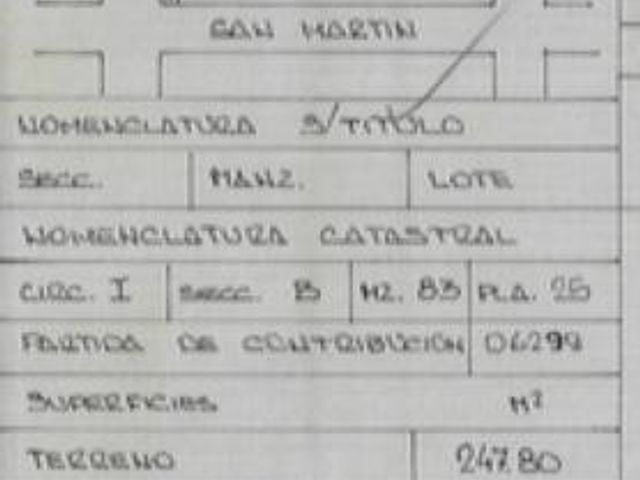 SAN MARTIN
NOMENCLATURA S/TITULO
SECC. MANZ. LOTE
NOMENCLATURA CATASTRAL
CIRC. I SECC. B MZ. 83 PLA. 25
PARTIDA DE CONTRIBUCION 06299
SUPERFICIES M²
TERRENO 247.80